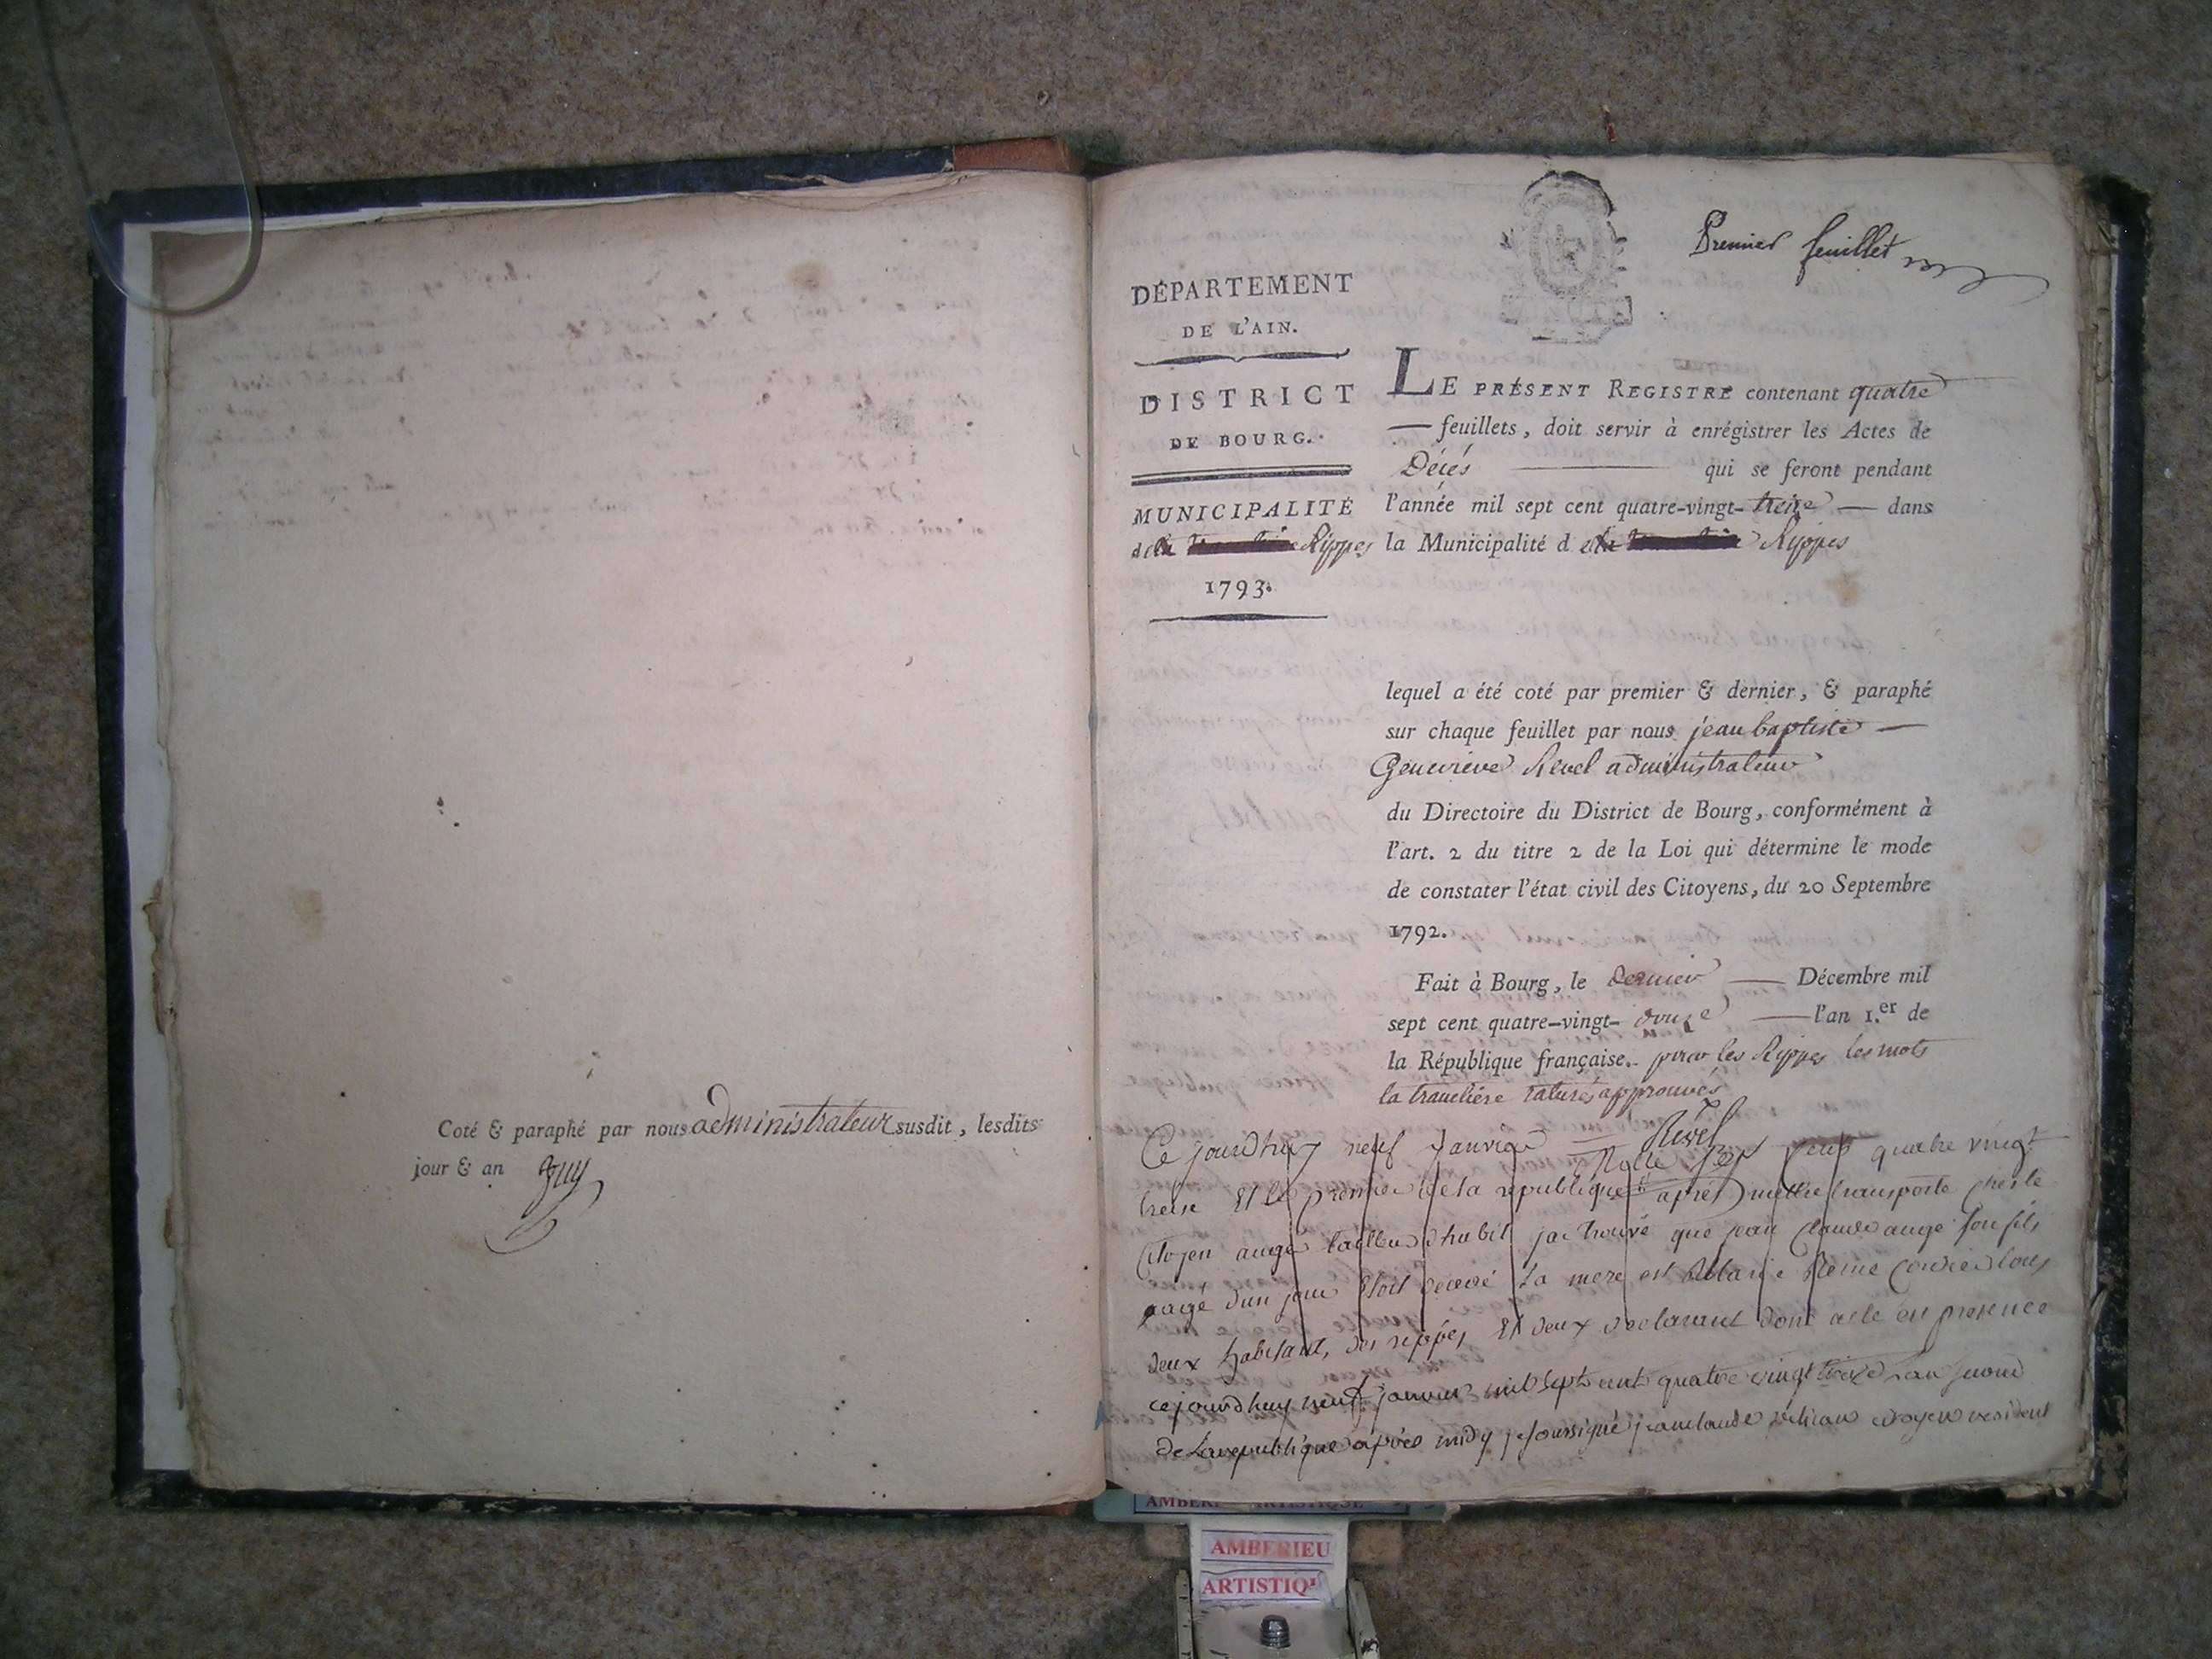 Coté & paraphé par nous administrateur susdit, lesdits
jour & an
Premier feuillet
DÉPARTEMENT
DE L'AIN.
DISTRICT
DE BOURG.
MUNICIPALITÉ
de Rippes
1793.
LE PRÉSENT REGISTRE contenant quatre
— feuillets, doit servir à enrégistrer les Actes de
Décés — qui se feront pendant
l'année mil sept cent quatre-vingt- treize — dans
la Municipalité d Rippes
lequel a été coté par premier & dernier, & paraphé
sur chaque feuillet par nous jean baptiste —
Genevieve Revel administrateur
du Directoire du District de Bourg, conformément à
l'art. 2 du titre 2 de la Loi qui détermine le mode
de constater l'état civil des Citoyens, du 20 Septembre
1792.
Fait à Bourg, le dernier — Décembre mil
sept cent quatre-vingt- douze — l'an 1.er de
la République française. pour les Rippes les mots
la trancliere raturés approuvés
Revel
Ce jourdhuy neuf Janvier quatre vingt
treise Et le premier de la republique après transporté chés le
Citoyen augé tailleur dhabit jai trouvé que jean claude augé son fils
agé dun jour étoit décédé La mere est Marie Reine tous
deux habitant, des rippes Et deux declarant dont acte en presence
cejourdhuy neuf janvier mil sept cent quatre vingt treize lan second
de La republique après midy je soussigné jean claude citoyen resident
AMBERIEU
ARTISTIQUE